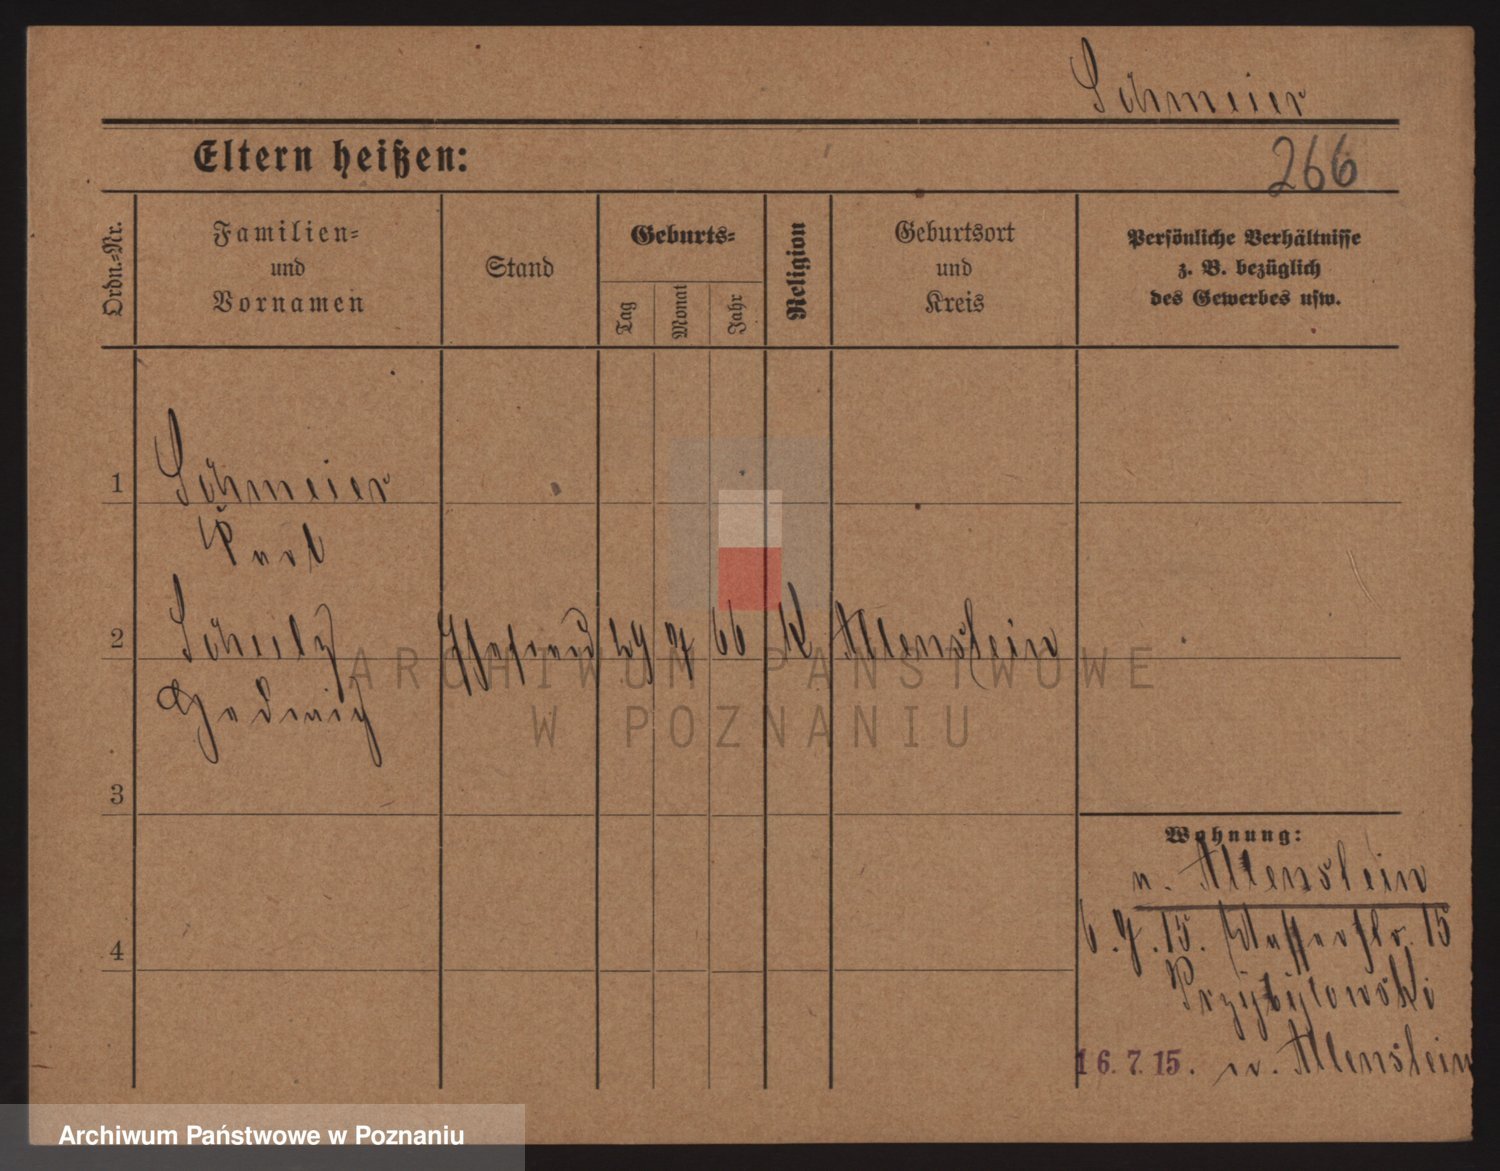 Schmeier
Eltern heißen:
266
Ordn.-Nr.
Familien-
und
Vornamen
Stand
Geburts-
Tag
Monat
Jahr
Religion
Geburtsort
und
Kreis
Persönliche Verhältnisse
z. B. bezüglich
des Gewerbes usw.
1
Schmeier
2
Schulz
Hedwig
Ehefrau 29 7 66 K Allenstein
3
4
Wohnung:
v. Allenstein
6.7.15. Wasserstr. 15
Przybylowski
16.7.15. n. Allenstein
ARCHIWUM PAŃSTWOWE
W POZNANIU
Archiwum Państwowe w Poznaniu